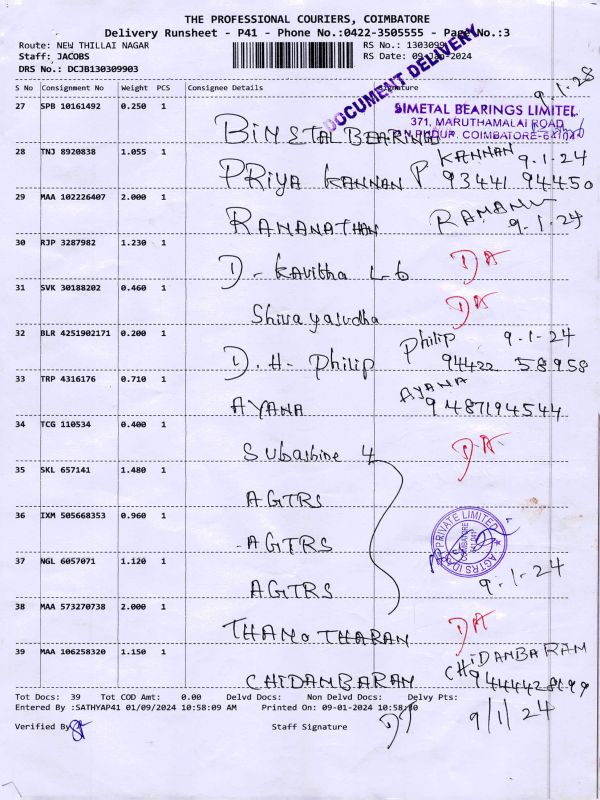 THE PROFESSIONAL COURIERS, COIMBATORE
Delivery Runsheet - P41 - Phone No.:0422-3505555 - Page No.:3
Route: NEW THILLAI NAGAR RS No.: 1303099
Staff: JACOBS RS Date: 09-Jan-2024
DRS No.: DCJB130309903
DOCUMENT DELIVERY
S No Consignment No Weight PCS Consignee Details Signature
9.1.28
27 SPB 10161492 0.250 1 BiMETAL BEARINGS
BIMETAL BEARINGS LIMITED
371, MARUTHAMALAI ROAD
COIMBATORE-641041
28 TNJ 8920838 1.055 1 PRiYA KANNAN P KANNAN 9.1.24
93441 94450
29 MAA 102226407 2.000 1 RAMANATHAN RAMANU
9.1.24
30 RJP 3287982 1.230 1 D. Kavitha L-6 DA
31 SVK 30188202 0.460 1 Shivayasudha DA
32 BLR 4251902171 0.200 1 D. H. Philip Philip 9-1-24
94422 58958
33 TRP 4316176 0.710 1 AYANA AYANA
9487194544
34 TCG 110534 0.400 1 DA
35 SKL 657141 1.480 1 AGTRS
36 IXM 505668353 0.960 1 AGTRS
PRIVATE LIMITED
COIMBATORE
AGTRS
37 NGL 6057071 1.120 1 AGTRS 9.1.24
38 MAA 573270738 2.000 1 THANOTHARAN DA
39 MAA 106258320 1.150 1 CHiDAMBARAM CHiDAMBARAM
9/1/24
Tot Docs: 39 Tot COD Amt: 0.00 Delvd Docs: Non Delvd Docs: Delvy Pts:
Entered By :SATHYAP41 01/09/2024 10:58:09 AM Printed On: 09-01-2024 10:58:30
Verified By Staff Signature